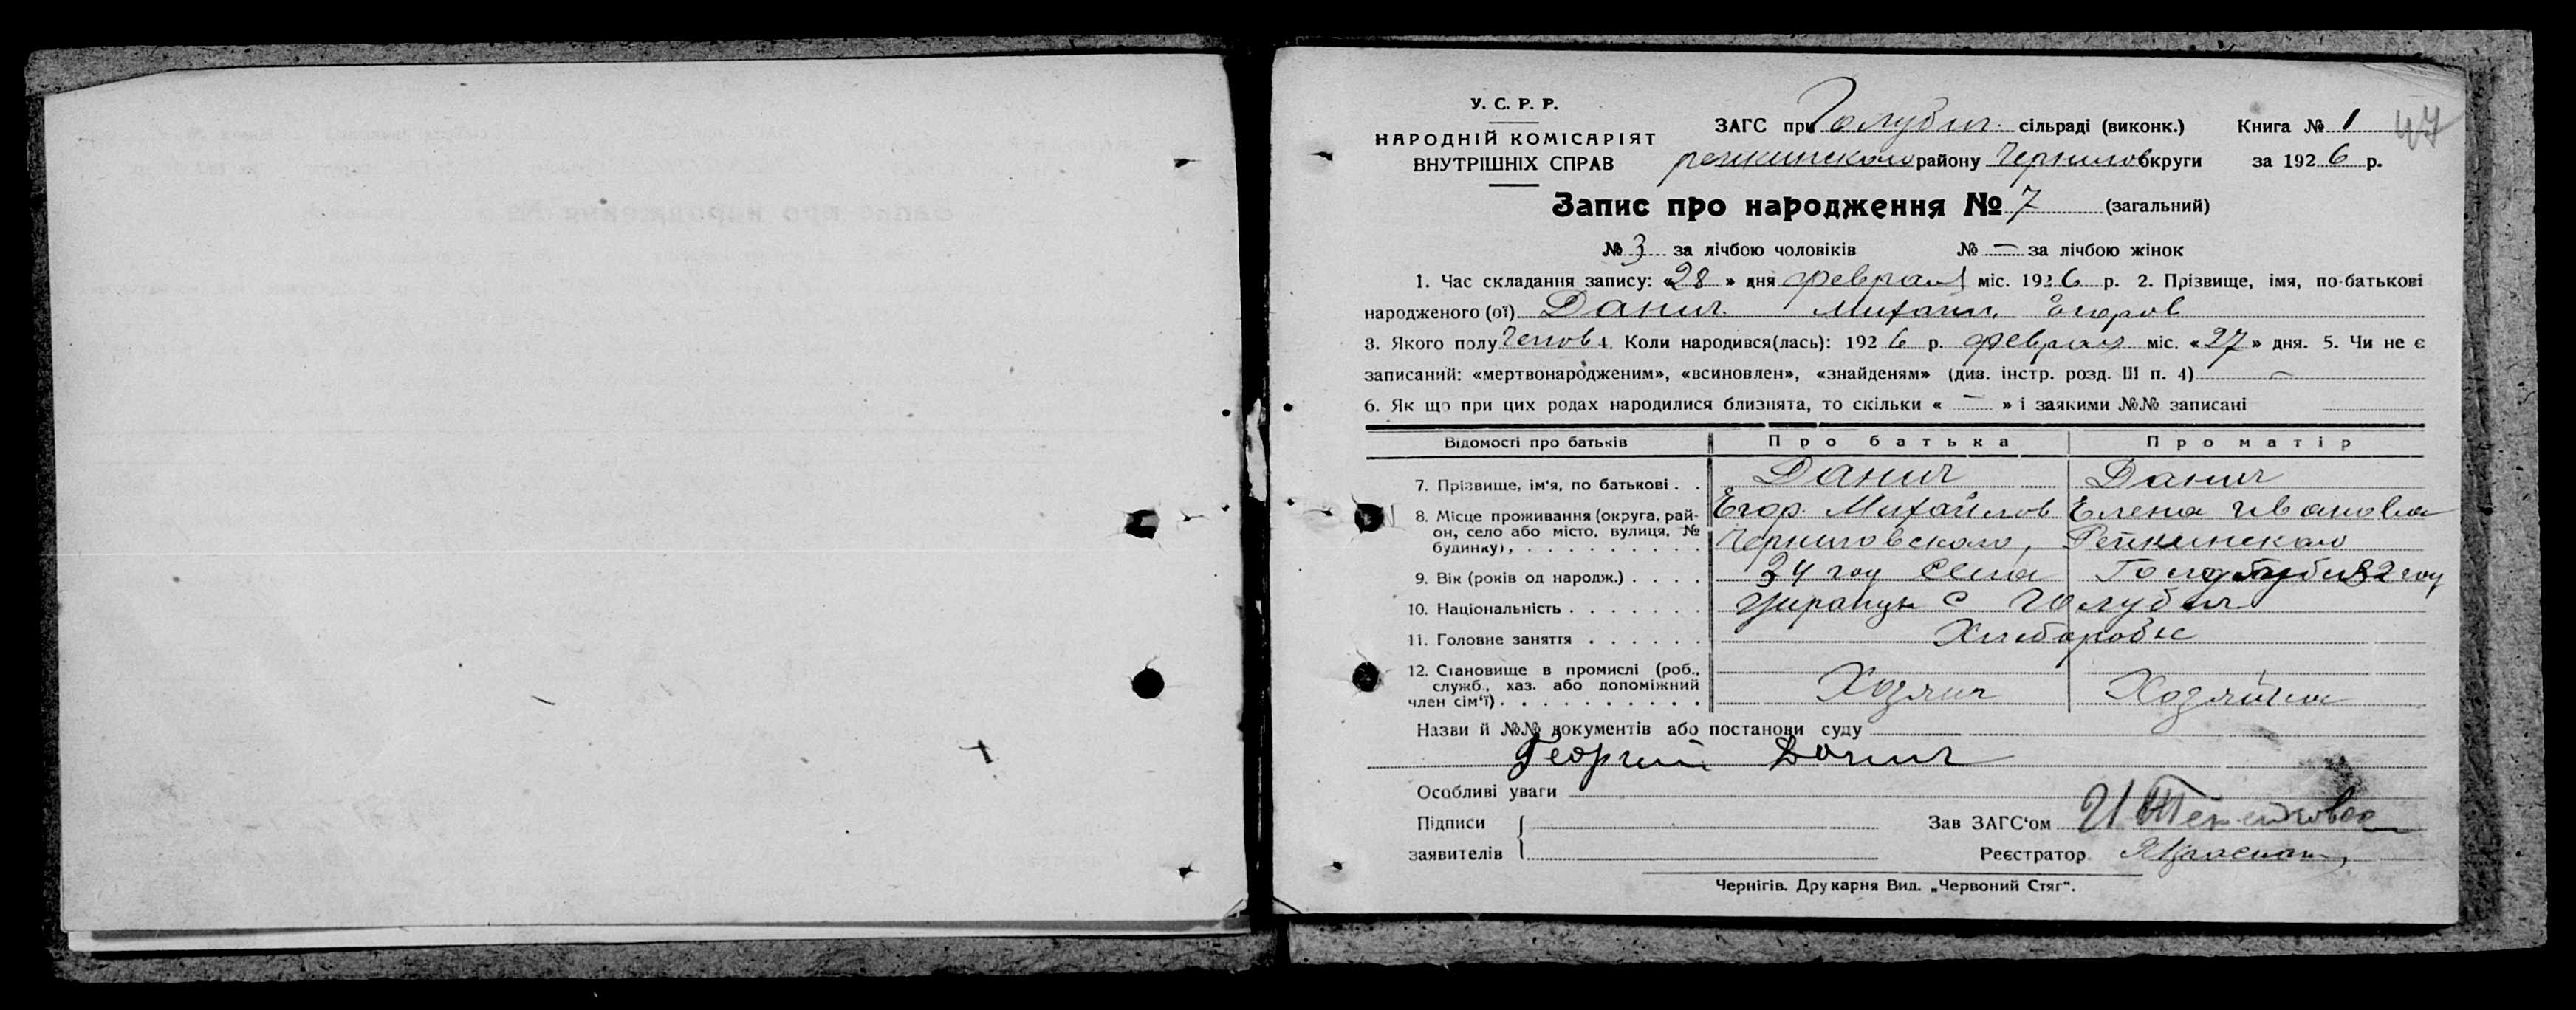 У. С. Р. Р.
НАРОДНІЙ КОМІСАРІЯТ
ВНУТРІШНІХ СПРАВ
ЗАГС при Голубич. сільраді (виконк.) Книга № 1 47
репкинского району Чернигов округи за 1926 р.
Запис про народження № 7 (загальний)
№ 3 за лічбою чоловіків № — за лічбою жінок
1. Час складання запису: «28» дня феврал міс. 1926 р. 2. Прізвище, імя, по-батькові
народженого (ої) Данич Михаил Егоров
3. Якого полу Челов 4. Коли народився(лась): 1926 р. феврал міс. «27» дня. 5. Чи не є
записаний: «мертвонародженим», «всиновлен», «знайденям» (див. інстр. розд. III п. 4) —
6. Як що при цих родах народилися близнята, то скільки « — » і заякими №№ записані
Відомості про батьків Про батька Про матір
7. Прізвище, ім'я, по батькові . . Данич Данич
8. Місце проживання (округа, рай- Егор Михайлов Елена Ивановна
он, село або місто, вулиця, №
будинку), . . . . . . . . . Черниговского, Репкинского
9. Вік (років од народж.) . . . . 34 год Села 32 год
10. Національність . . . . . . . Украинцы с Голубич
11. Головне заняття . . . . . . Хлебороб
12. Становище в промислі (роб.,
служб., хаз. або допоміжний
член сім'ї) . . . . . . . . . . Хозяин Хозяйка
Назви й №№ документів або постанови суду
Георгий Данич
Особливі уваги
Підписи
заявителів
Зав ЗАГС'ом
Реєстратор
Чернігів. Друкарня Вид. „Червоний Стяг“.